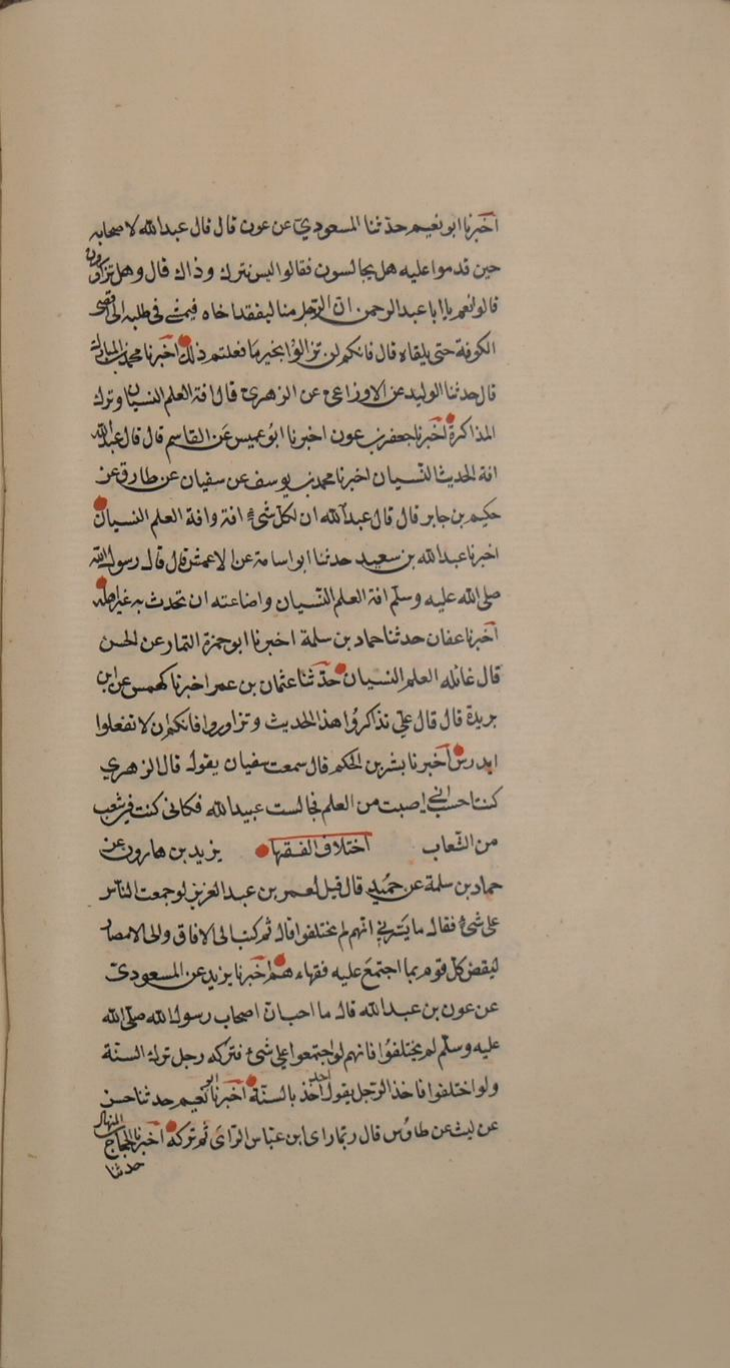 اخبرنا ابو نعيم حدثنا المسعودي عن عون قال قال عبدالله لاصحابه
حين قدموا عليه هل تجالسون فقالوا ليس نترك وذاك قال وهل تزاورون
قالوا نعم يا ابا عبدالرحمن ان الرجل منا ليفقد اخاه فيمشى فى طلبه الى اقصى
الكوفة حتى يلقاه قال فانكم لن تزالوا بخير ما فعلتم ذلك اخبرنا محمد بن المبارك
قال حدثنا الوليد عن الاوزاعى عن الزهرى قال افة العلم النسيان وترك
المذاكرة اخبرنا جعفر بن عون اخبرنا ابو عميس عن القاسم قال قال عبدالله
افة الحديث النسيان اخبرنا محمد بن يوسف عن سفيان عن طارق عن
حكيم بن جابر قال قال عبدالله ان لكل شئ افة وافة العلم النسيان
اخبرنا عبدالله بن سعيد حدثنا ابو اسامة عن الاعمش قال قال رسول الله
صلى الله عليه وسلم افة العلم النسيان واضاعته ان تحدث به غير اهله
اخبرنا عفان حدثنا حماد بن سلمة اخبرنا ابو حمزة التمار عن الحسن
قال غائلة العلم النسيان حدثنا عثمان بن عمر اخبرنا كهمس عن ابن
بريدة قال قال على تذاكروا هذا الحديث وتزاوروا فانكم ان لا تفعلوا
يدرس اخبرنا بشر بن الحكم قال سمعت سفيان يقول قال الزهري
كنت احسب انى اصبت من العلم فجالست عبيد الله فكانى كنت فى شعب
من الشعاب اختلاف الفقها يزيد بن هارون عن
حماد بن سلمة عن حميد قال قيل لعمر بن عبد العزيز لو جمعت الناس
على شئ فقال ما يسرنى انهم لم يختلفوا قال ثم كتب الى الافاق والى الامصار
ليقض كل قوم بما اجتمع عليه فقهاءهم اخبرنا يزيد عن المسعودى
عن عون بن عبدالله قال ما احب ان اصحاب رسول الله صلى الله
عليه وسلم لم يختلفوا فانهم لو اجتمعوا على شئ فتركه رجل ترك السنة
ولو اختلفوا فاخذ الرجل بقول احد اخذ بالسنة اخبرنا ابو نعيم حدثنا حسن
عن ليث عن طاوس قال ربما راى ابن عباس الراى ثم تركه اخبرنا الحجاج المنهال
حدثنا